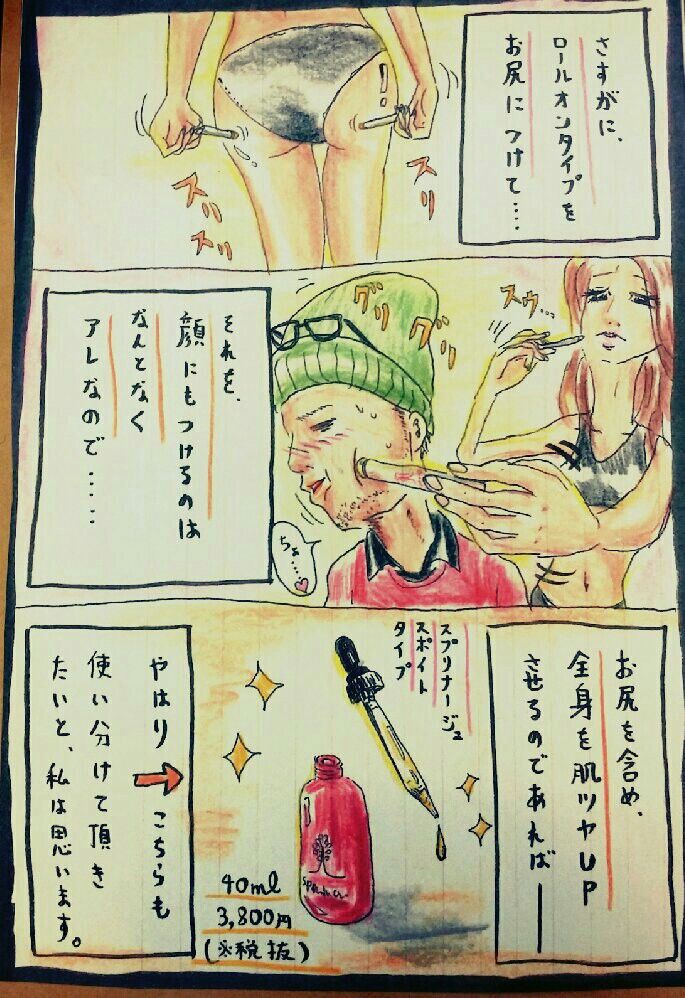 さすがに、
ロールオンタイプを
お尻につけて‥‥
スリ
スリ
スリ
それを、
顔にもつけるのは
なんとなく
アレなので‥‥‥
グリ
グリ
スゥ…
ちょ…♥
お尻を含め、
全身を肌ツヤUP
させるのであれば──
スプリナージュ
スポイト
タイプ
40ml
3,800円
(※税抜)
やはり→こちらも
使い分けて頂き
たいと、私は思います。